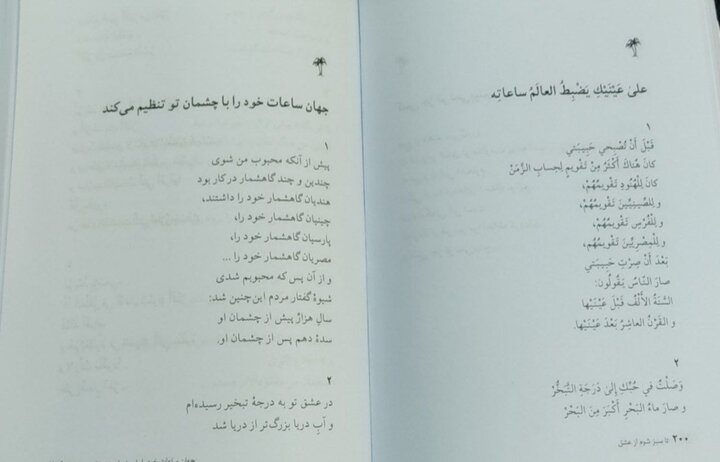 علىٰ عَيْنَيْكِ يَضْبِطُ العالَمُ ساعاتِه
١
قَبْلَ أَنْ تُصْبِحي حَبِيبَتي
كانَ هُناكَ أَكْثَرُ مِنْ تَقْويمٍ لِحِسابِ الزَّمَنْ
كانَ لِلْهُنُودِ تَقْويمُهُمْ،
و لِلصِّينِيِّينَ تَقْويمُهُمْ،
و لِلْفُرْسِ تَقْويمُهُمْ،
و لِلْمِصْرِيِّينَ تَقْويمُهُم،
بَعْدَ أَنْ صِرْتِ حَبِيبَتي
صارَ النّاسُ يَقُولُونَ:
السَّنَةُ الأَلْفُ قَبْلَ عَيْنَيْها
و القَرْنُ العاشِرُ بَعْدَ عَيْنَيْها.
٢
وَصَلْتُ في حُبِّكِ إلىٰ دَرَجَةِ التَّبَخُّرْ
و صارَ ماءُ البَحْرِ أَكْبَرَ مِنَ البَحْرْ
۲۰۰ تا سبز شوم از عشق
جهان ساعات خود را با چشمان تو تنظیم می‌کند
۱
پیش از آنکه محبوب من شوی
چندین و چند گاهشمار در کار بود
هندیان گاهشمار خود را داشتند،
چینیان گاهشمار خود را،
پارسیان گاهشمار خود را،
مصریان گاهشمار خود را ...
و از آن پس که محبوبم شدی
شیوهٔ گفتار مردم این‌چنین شد:
سالِ هزارْ پیش از چشمان او
سدهٔ دهم پس از چشمان او.
۲
در عشق تو به درجهٔ تبخیر رسیده‌ام
و آبِ دریا بزرگ‌تر از دریا شد